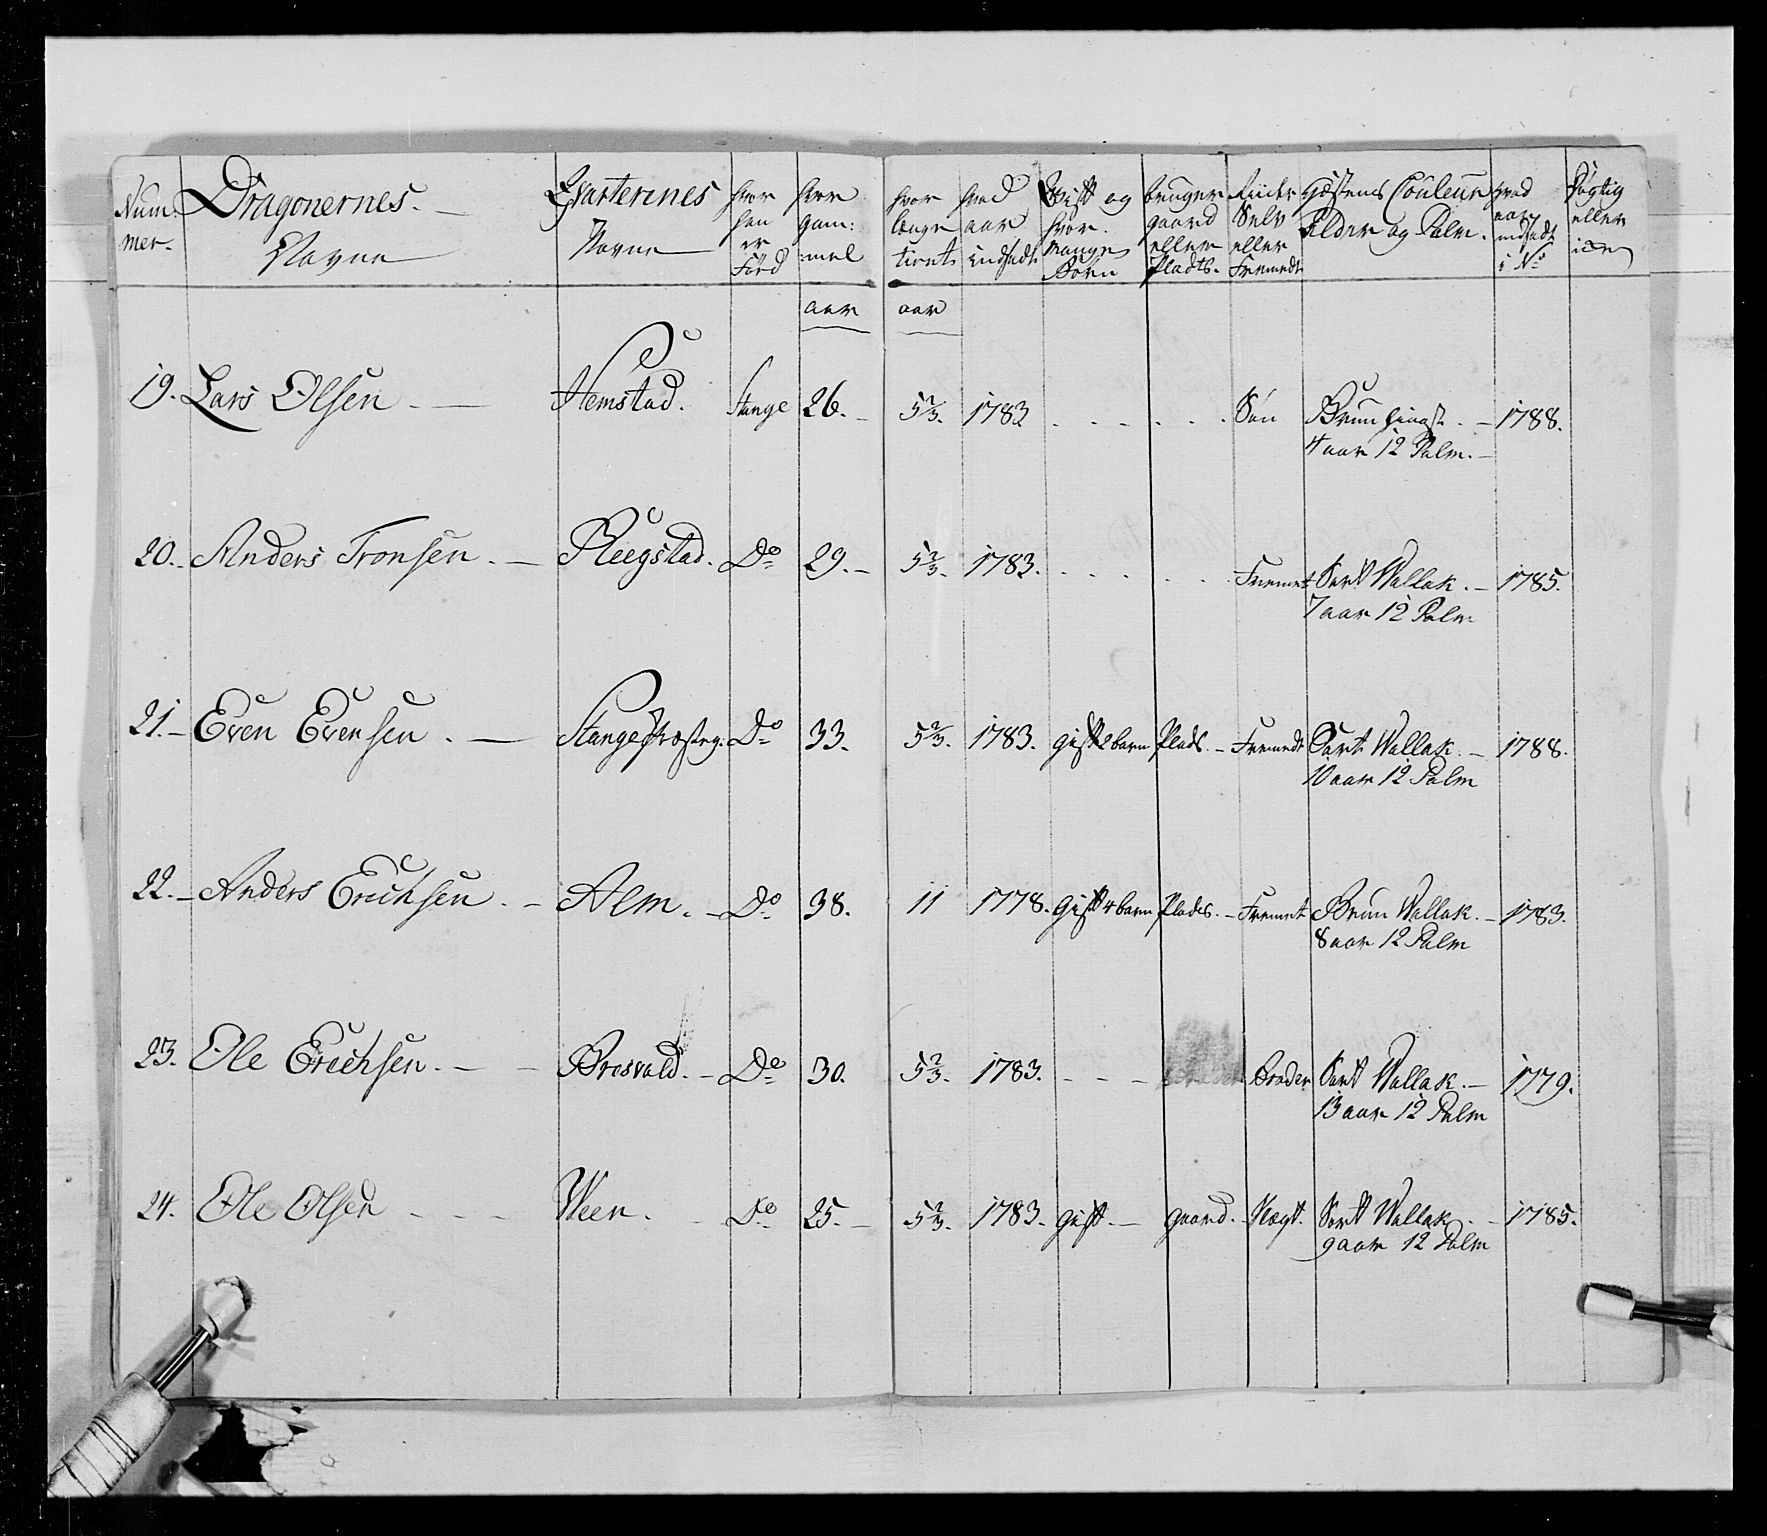 Num: Dragonernes. Qvarterenes hvor hvor hvor hvad Gift og bruger Riider Hæstens Couleur hvad Dygtig
mer. Navne Navne han gam: længe aar hvor gaard Selv Alder og Palm. aar eller
er mel tient indsadt mange eller eller indsadt icke
Född Börn Pladts. Fremedt i No
aar aar
19. Lars Olsen. Hemstad. Stange 26. 5 2/3. 1783 . . . . . . Sön Brun hingst. 1788.
4 aar 12 Palm.
20. Anders Tronsen. Do 29. 5 2/3. 1783. . . . . . Fremet Sort Wallak. 1785.
7 aar 12 Palm
21. Even Evensen. Stange Præsteg. Do 33. 5 2/3. 1783. gift 2 barn Plads. Fremedt Sort Wallak. 1788.
10 aar 12 Palm
22. Anders Erichsen. Alm. Do 38. 11 1778. Gift 4 barn Plads. Fremet Brun Wallak. 1783.
8 aar 12 Palm
23. Ole Erichsen. Do 30. 5 2/3. 1783. Broder Sort Wallak. 1779.
13 aar 12 Palm
24. Ole Olsen Ween. Do 25. 5 2/3. 1783. gift. gaard. Sort Wallak. 1785.
9 aar 12 Palm